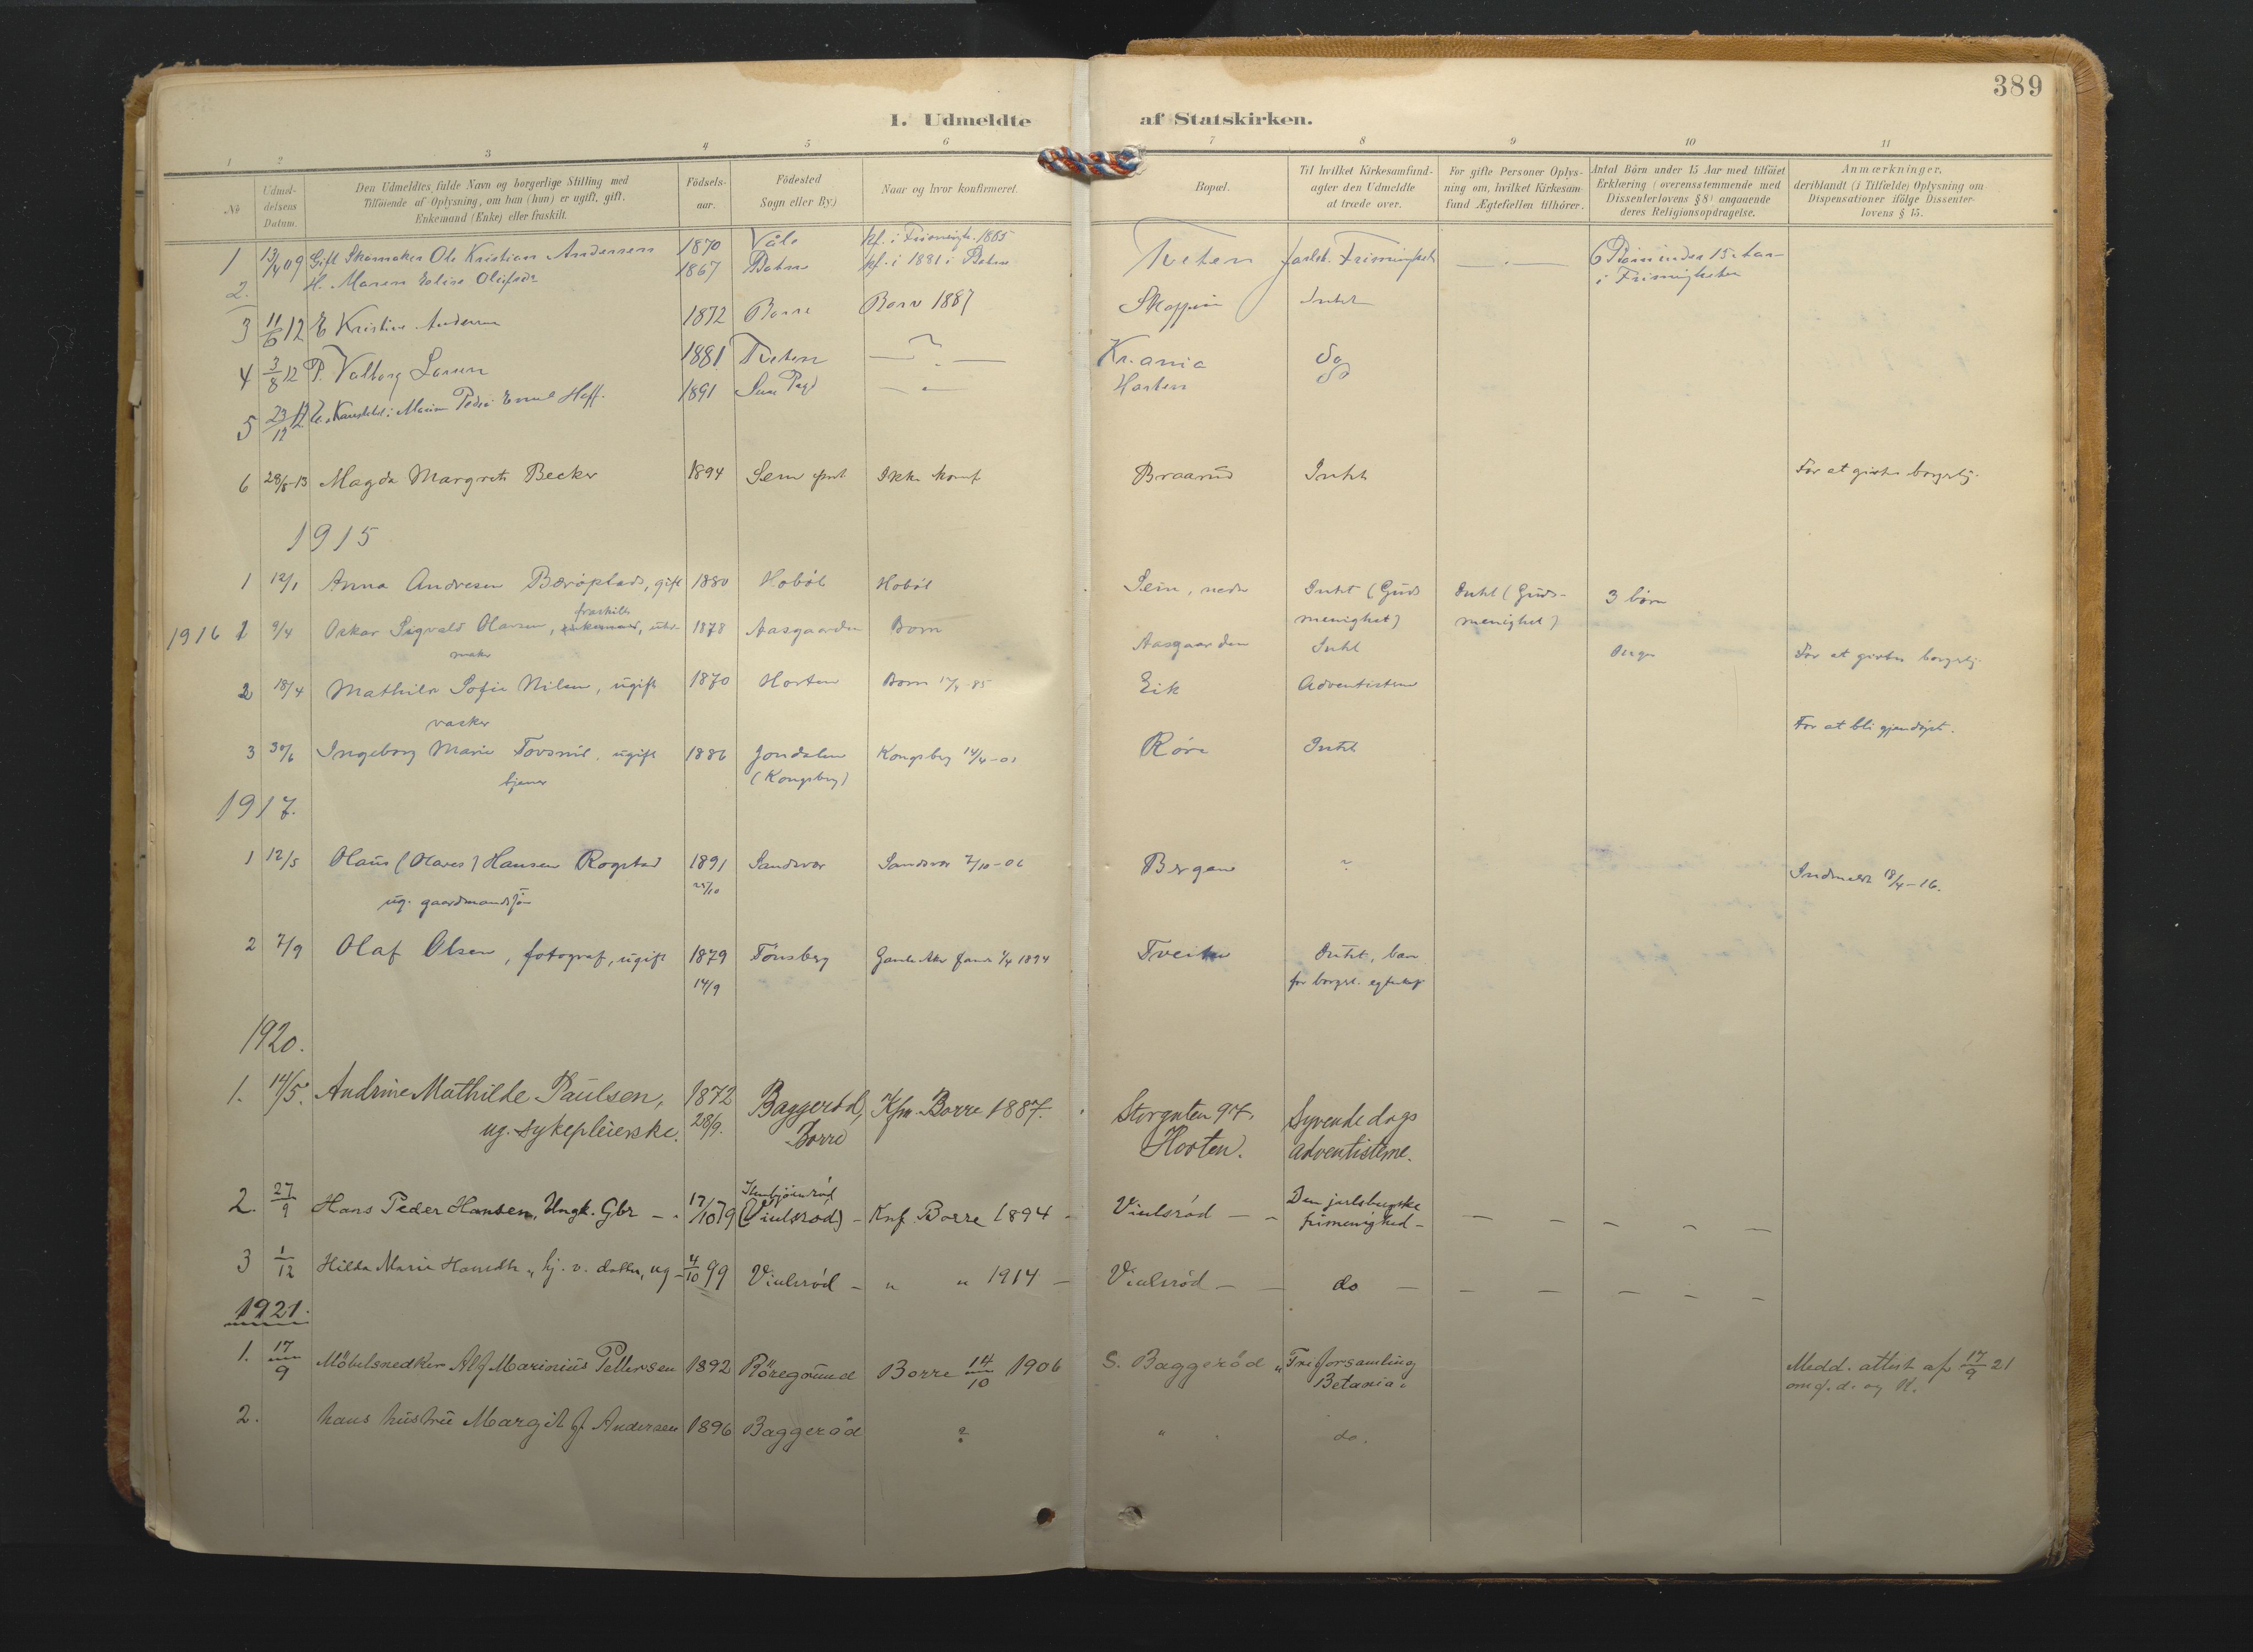 389
1. Udmeldte af Statskirken.
1 2 3 4 5 6 7 8 9 10 11
№
Udmel-
delsens
Datum.
Den Udmeldtes fulde Navn og borgerlige Stilling med
Tilföiende af Oplysning, om han (hun) er ugift, gift,
Enkemand (Enke) eller fraskilt.
Födsels-
aar.
Födested
Sogn eller By.)
Naar og hvor konfirmeret.
Bopæl.
Til hvilket Kirkesamfund-
agter den Udmeldte
at træde over.
For gifte Personer Oplys-
ning om, hvilket Kirkesam-
fund Ægtefællen tilhörer.
Antal Börn under 15 Aar med tilföiet
Erklæring (overensstemmende med
Dissenterlovens § 8) angaaende
deres Religionsopdragelse.
Anmærkninger,
deriblandt (i Tilfælde) Oplysning om
Dispensationer ifölge Dissenter-
lovens § 15.
1 13/4 09 Gift Skomaker Ole Kristian Andersen 1870 Våle kf. i Frimenigh. 1885 Tveten Jarlsb. Frimenighet — 6 Börn under 15 Aar
2. H. Maren Eline 1867 kf. i 1881 i i Frimenigheten
3 11/6 12 E Kristine Andersen 1872 Borre Borre 1887 Skoppum Intet
4 3/8 12 P. Valborg Larsen 1881 Tveten — Kr.ania do
5 23/12 12 1891 Sem — Horten do
6 28/8-13 Magda Margrete Becker 1894 Sem Ikke konf Braarud Intet For at giftes borgerlig.
1915
1 12/1 Anna Andresen gift 1880 Hobøl Hobøl Sem, nedre Intet (Guds Intet (Guds- 3 börn
menighet) menighet)
fraskilt
1916 1 9/4 Oskar Sigvald Olavsen, enkemand, uhr- 1878 Aasgaarden Borre Aasgaarden Intet Ingen For at giftes borgerlig
maker
2 18/4 Mathilde Sofie Nilsen, ugift 1870 Horten Borre 85 Eik Adventisterne
vasker For at bli gjendøpt.
3 30/6 Ingeborg Marie Tovsrud, ugift 1886 Jondalen Kongsberg 14/4-01 Røre Intet
tjener (Kongsberg)
1917.
1 12/5 Olaus (Olaves) Hansen Rogstad 1891 Sandsvær Sandsvær 7/10-06 Bergan ? Indmeldt 18/4-16.
ug. gaardmandssøn
2 7/9 Olaf Olsen, fotograf, ugift 1879 Tönsberg Gamle Aker 1894 Tveiten Intet, bare
14/9 for borgerl. egteskap
1920.
1. 14/5. Andrine Mathilde Paulsen, 1872 Baggeröd, Kfm. Borre 1887. Storgaten 97, Syvende dags
ug. sykepleierske. 28/9. Borre Horten. adventisterne.
2. 27/9 Hans Peder Hansen, Ungk. Gbr — 17/10 79 (Viulsrød) — Knf. Borre 1894 — Viulsrød — Den jarlsbergske
frimenighed —
3 1/12 Hilda Marie Hansdtr., hj. v. datter, ug — 4/10 99 Viulsrød — " " 1914 — Viulsrød — do —
1921.
1. 17/9 Möbelsnedker Alf Marinius Pettersen 1892 Röregrund Borre 14/10 1906 S. Baggeröd "Friforsamling Medd. attest af 17/9 21
Betania" om d. og K.
2. hans hustru Margit f. Andersen 1896 Baggeröd ? " do.